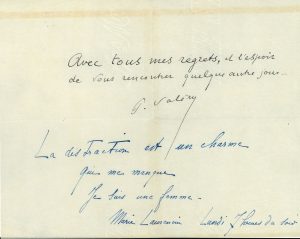 Avec tous mes regrets, et l'espoir
de vous rencontrer quelque autre jour...
P. Valéry
La distraction est un charme
qui me manque
Je suis une femme -
Marie Laurencin Lundi 7 heures du soir